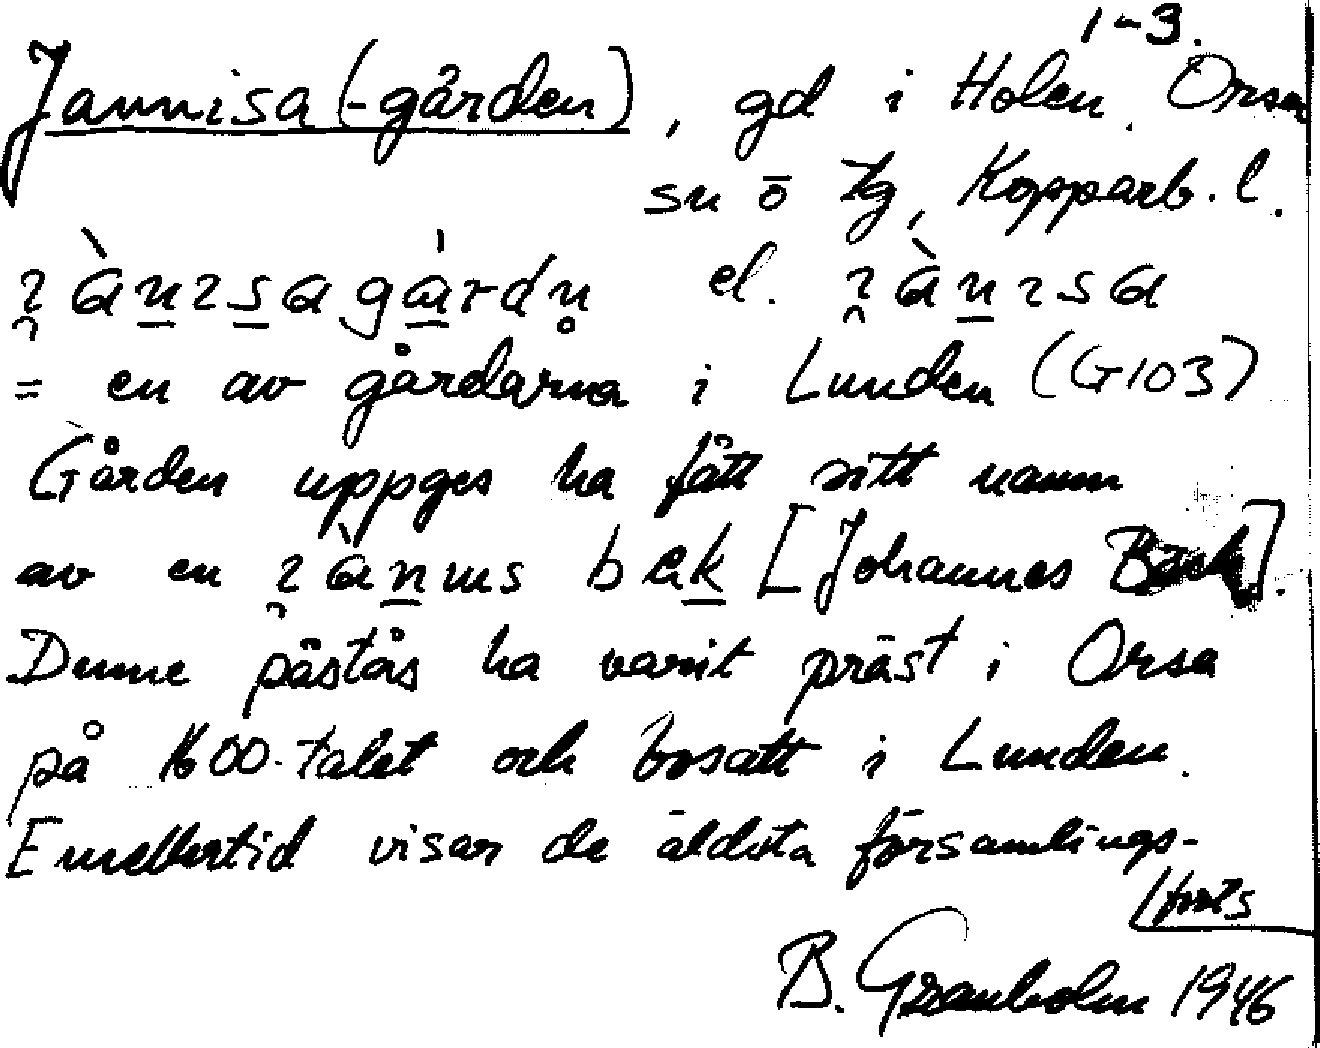 1-3.
Jannisa (-gården), gd i Holen, Orsa
sn ö tg, Kopparb. l.
el.
= en av gårdarna i Lunden (G103)
Gården uppges ha fått sitt namn
av en [Johannes Back].
Denne påstås ha varit präst i Orsa
på 1600-talet och bosatt i Lunden.
Emellertid visar de äldsta församlings-
forts
B. Granholm 1946